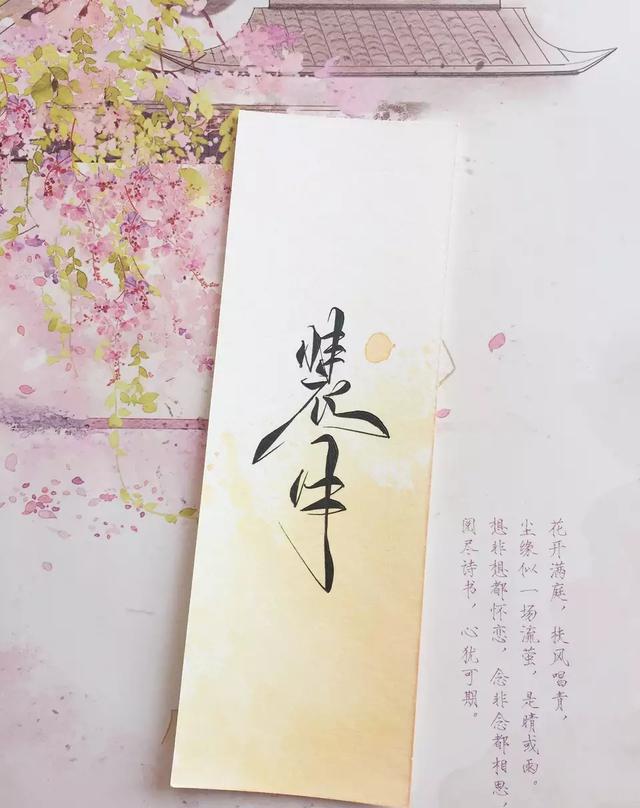 花开满庭，扶风唱，
尘缘似一场流萤，是晴或雨。
想非想都怀恋，念非念都相思，
阅尽诗书，心犹可期。